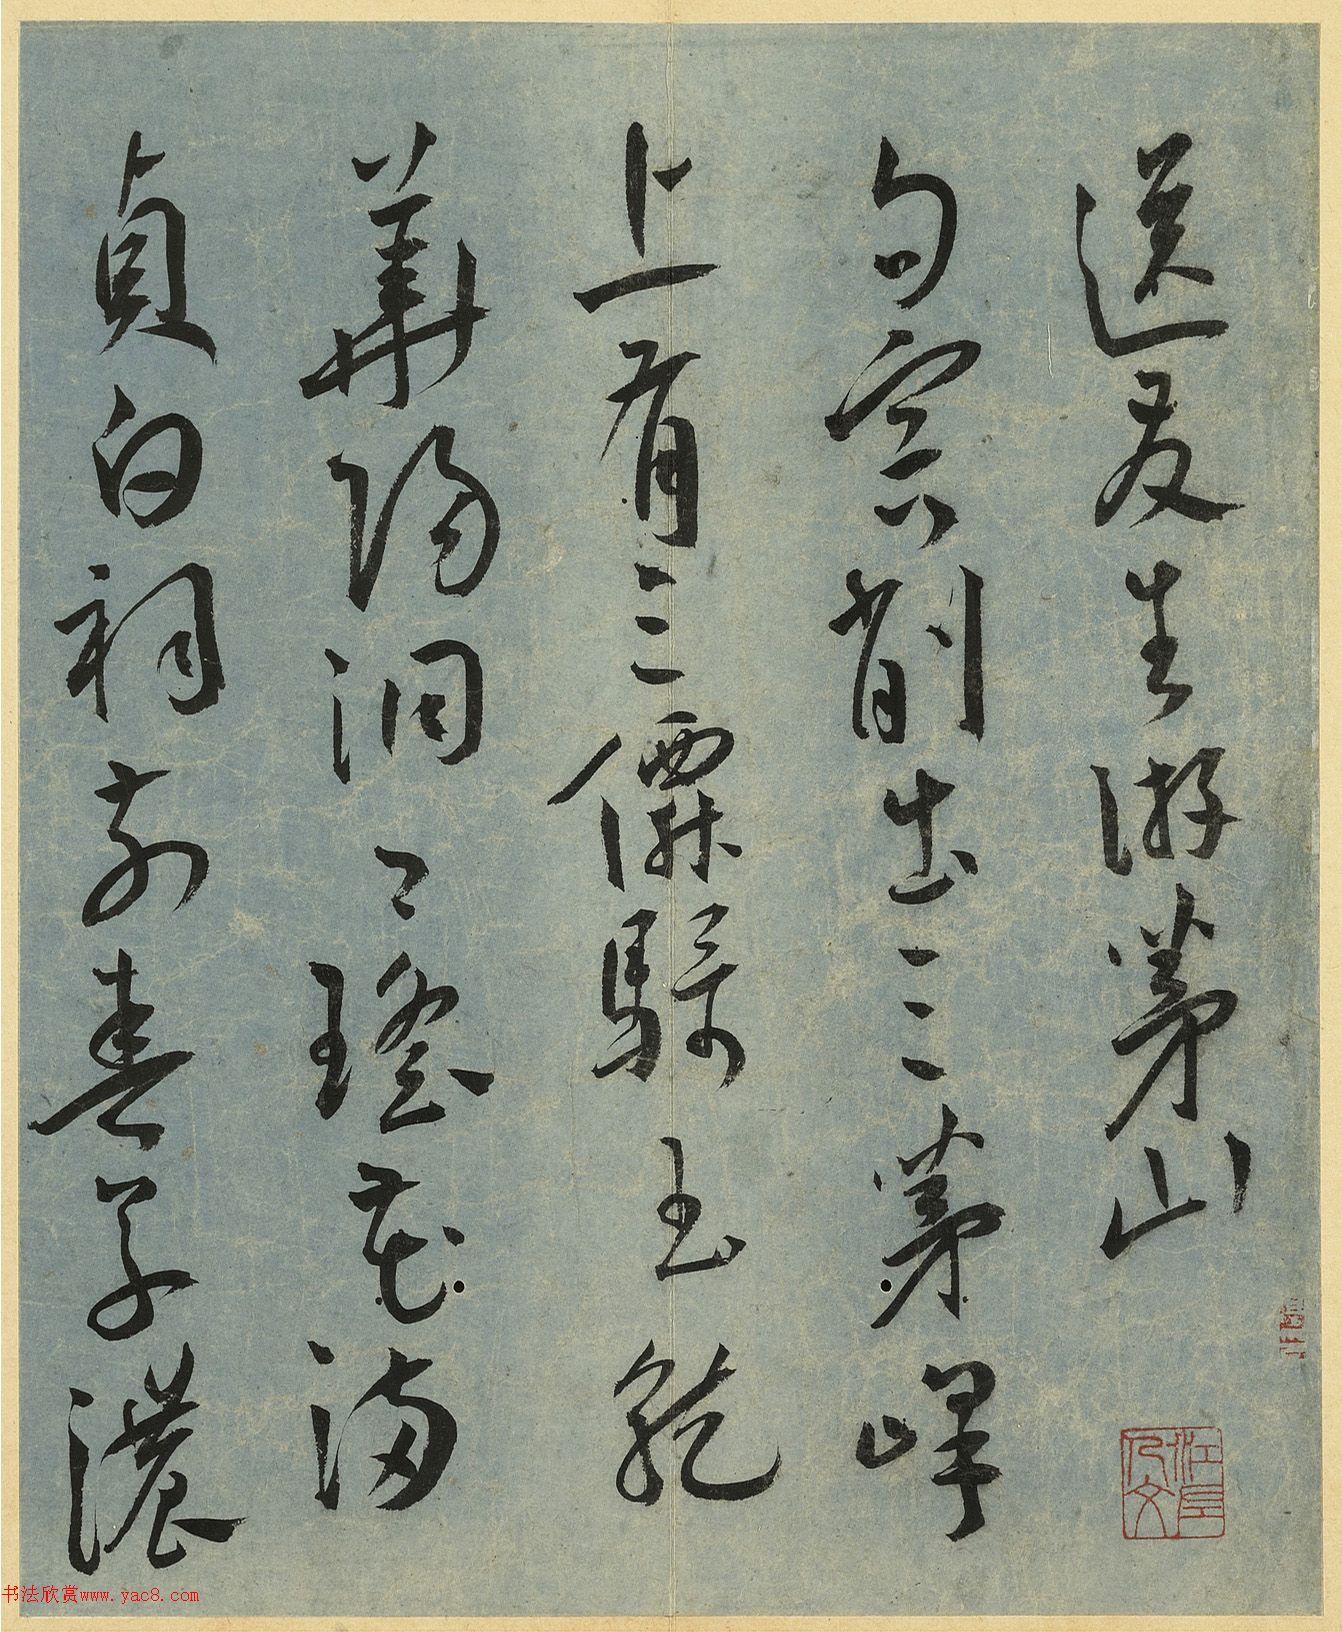 送友生游茅山
句容削出三茅峰
上有三僊騎玉龍
華陽洞洞瑤花滿
貞白祠前春草濃
书法欣赏www.yac8.com